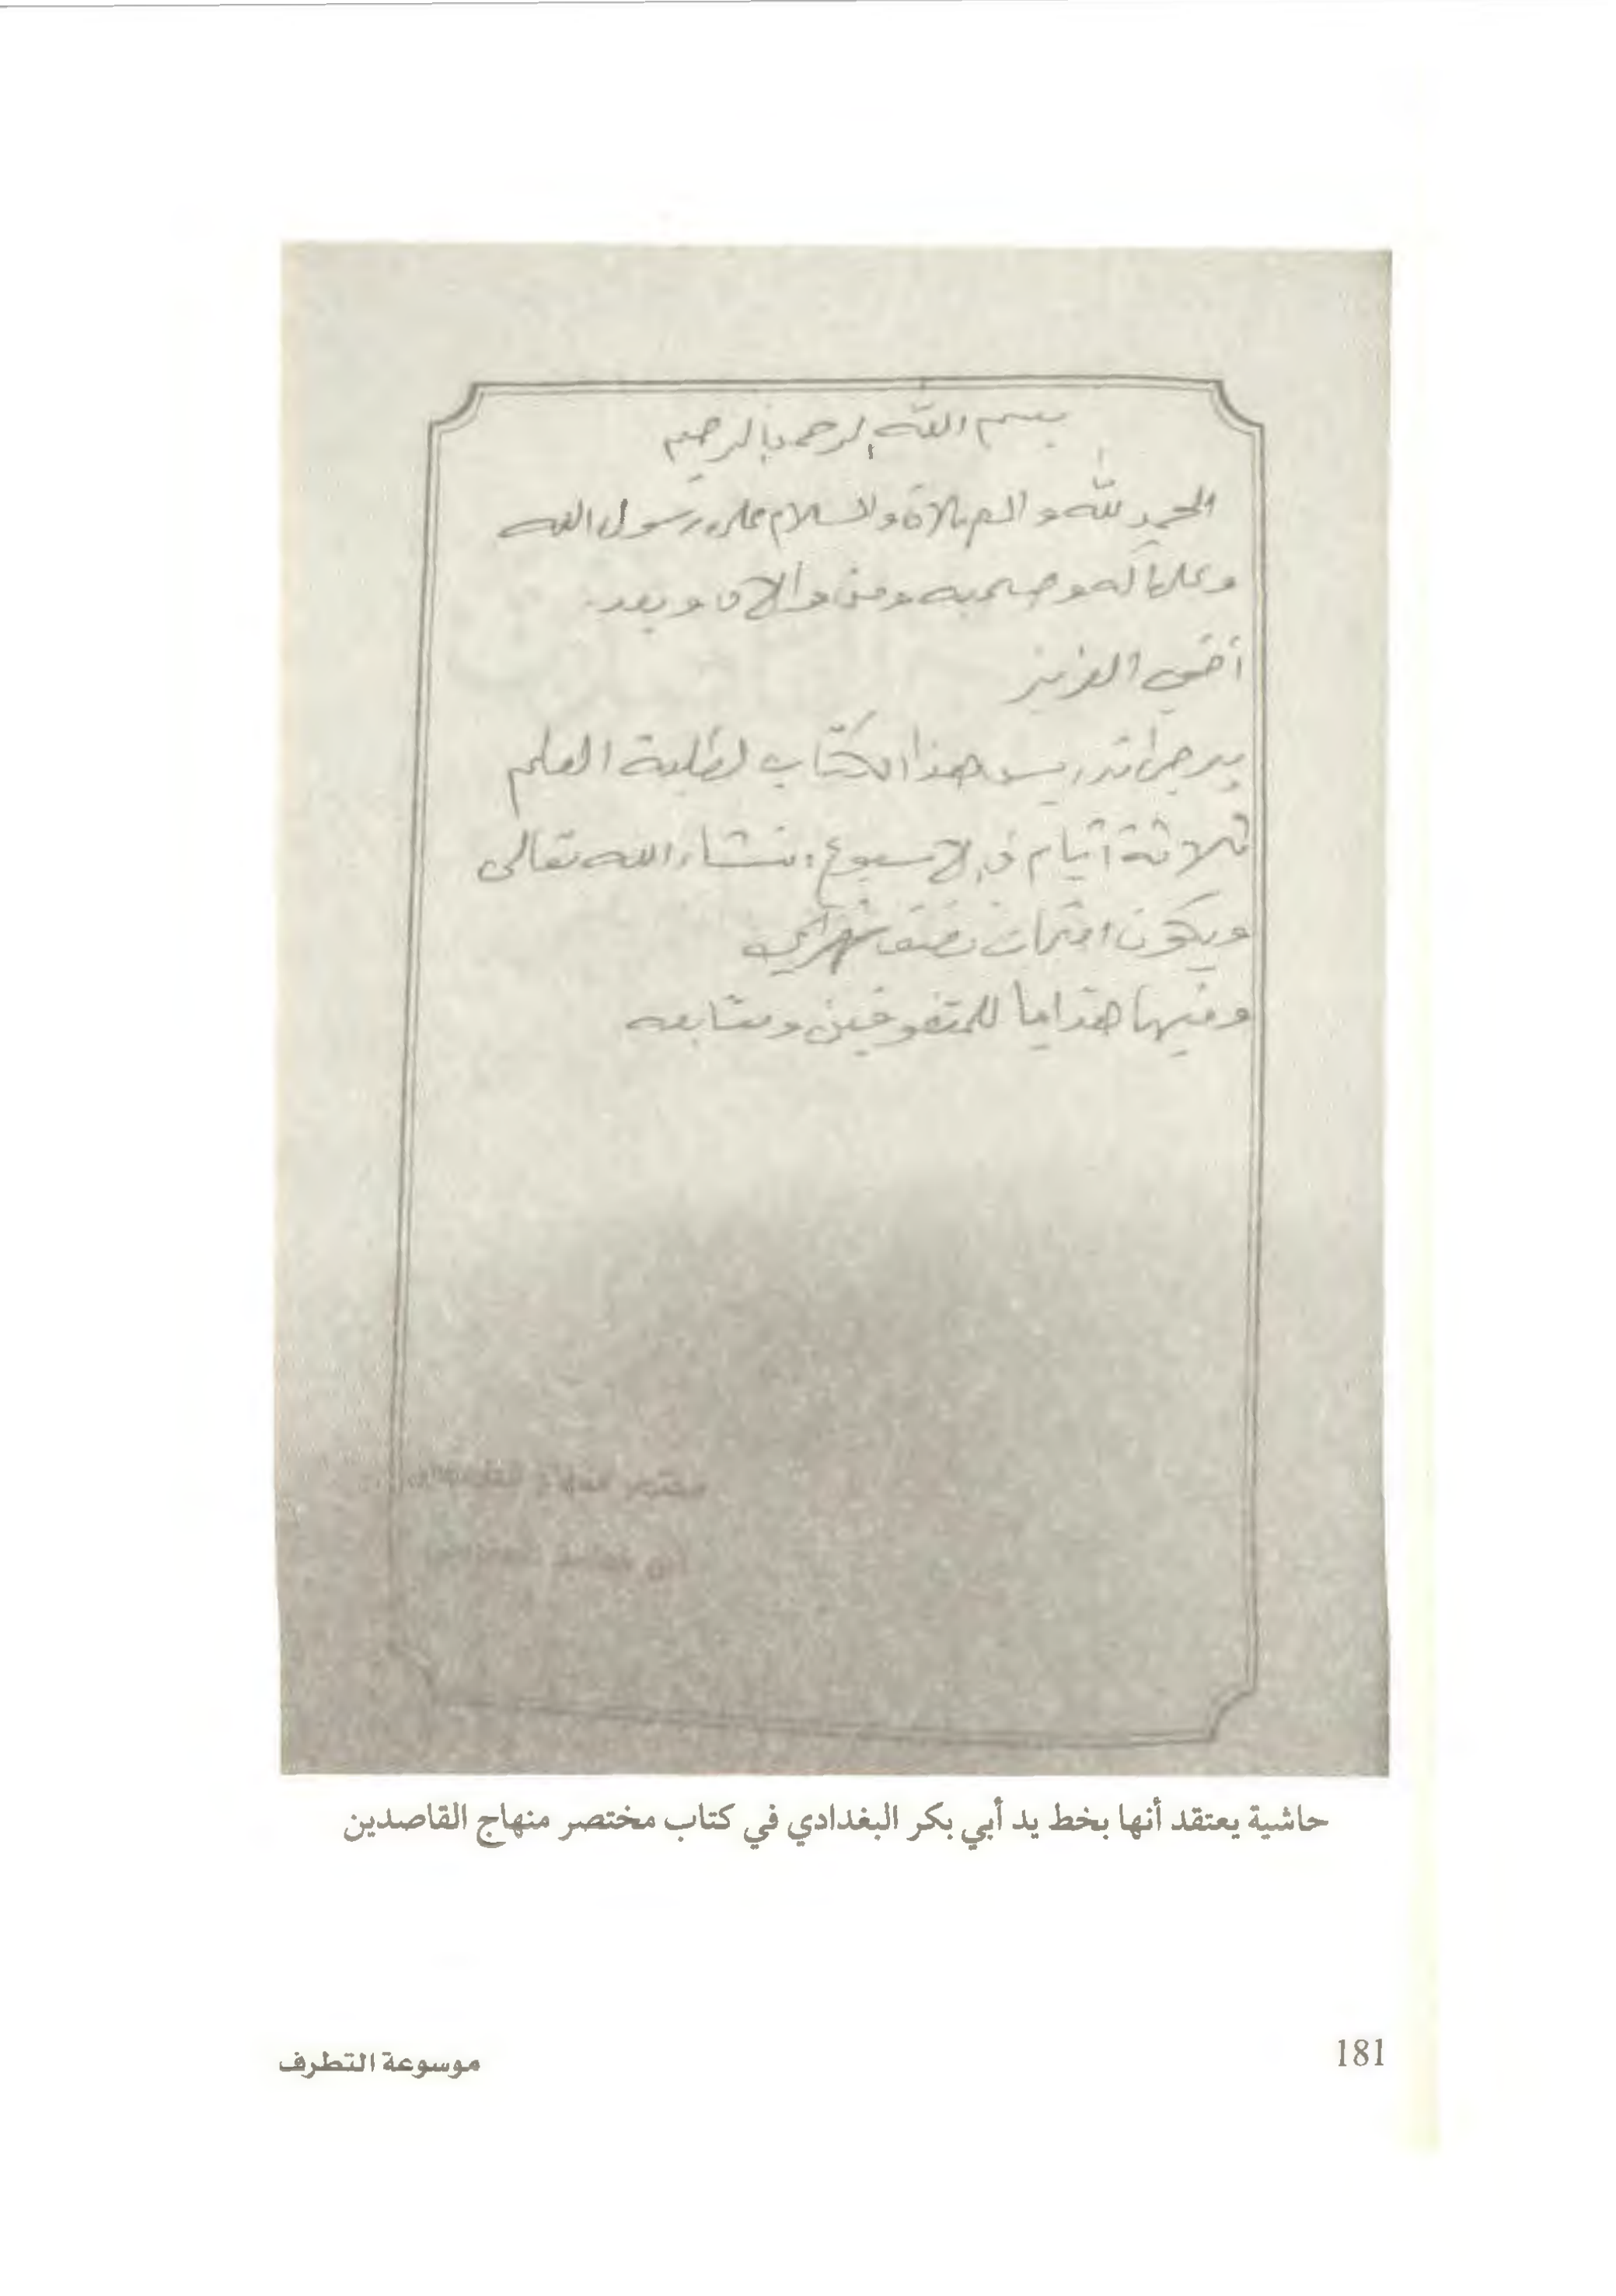 بسم الله الرحمن الرحيم
الحمد لله والصلاة والسلام على رسول الله
وعلى آله وصحبه ومن والاه وبعد.
أخي العزيز
يرجى تدريس هذا الكتاب لطلبة العلم
ثلاثة أيام في الاسبوع انشاء الله تعالى
ويكون امتحان نصف شهري
وفيها هدايا للمتفوقين ومتابعه
حاشية يعتقد أنها بخط يد أبي بكر البغدادي في كتاب مختصر منهاج القاصدين
181
موسوعة التطرف